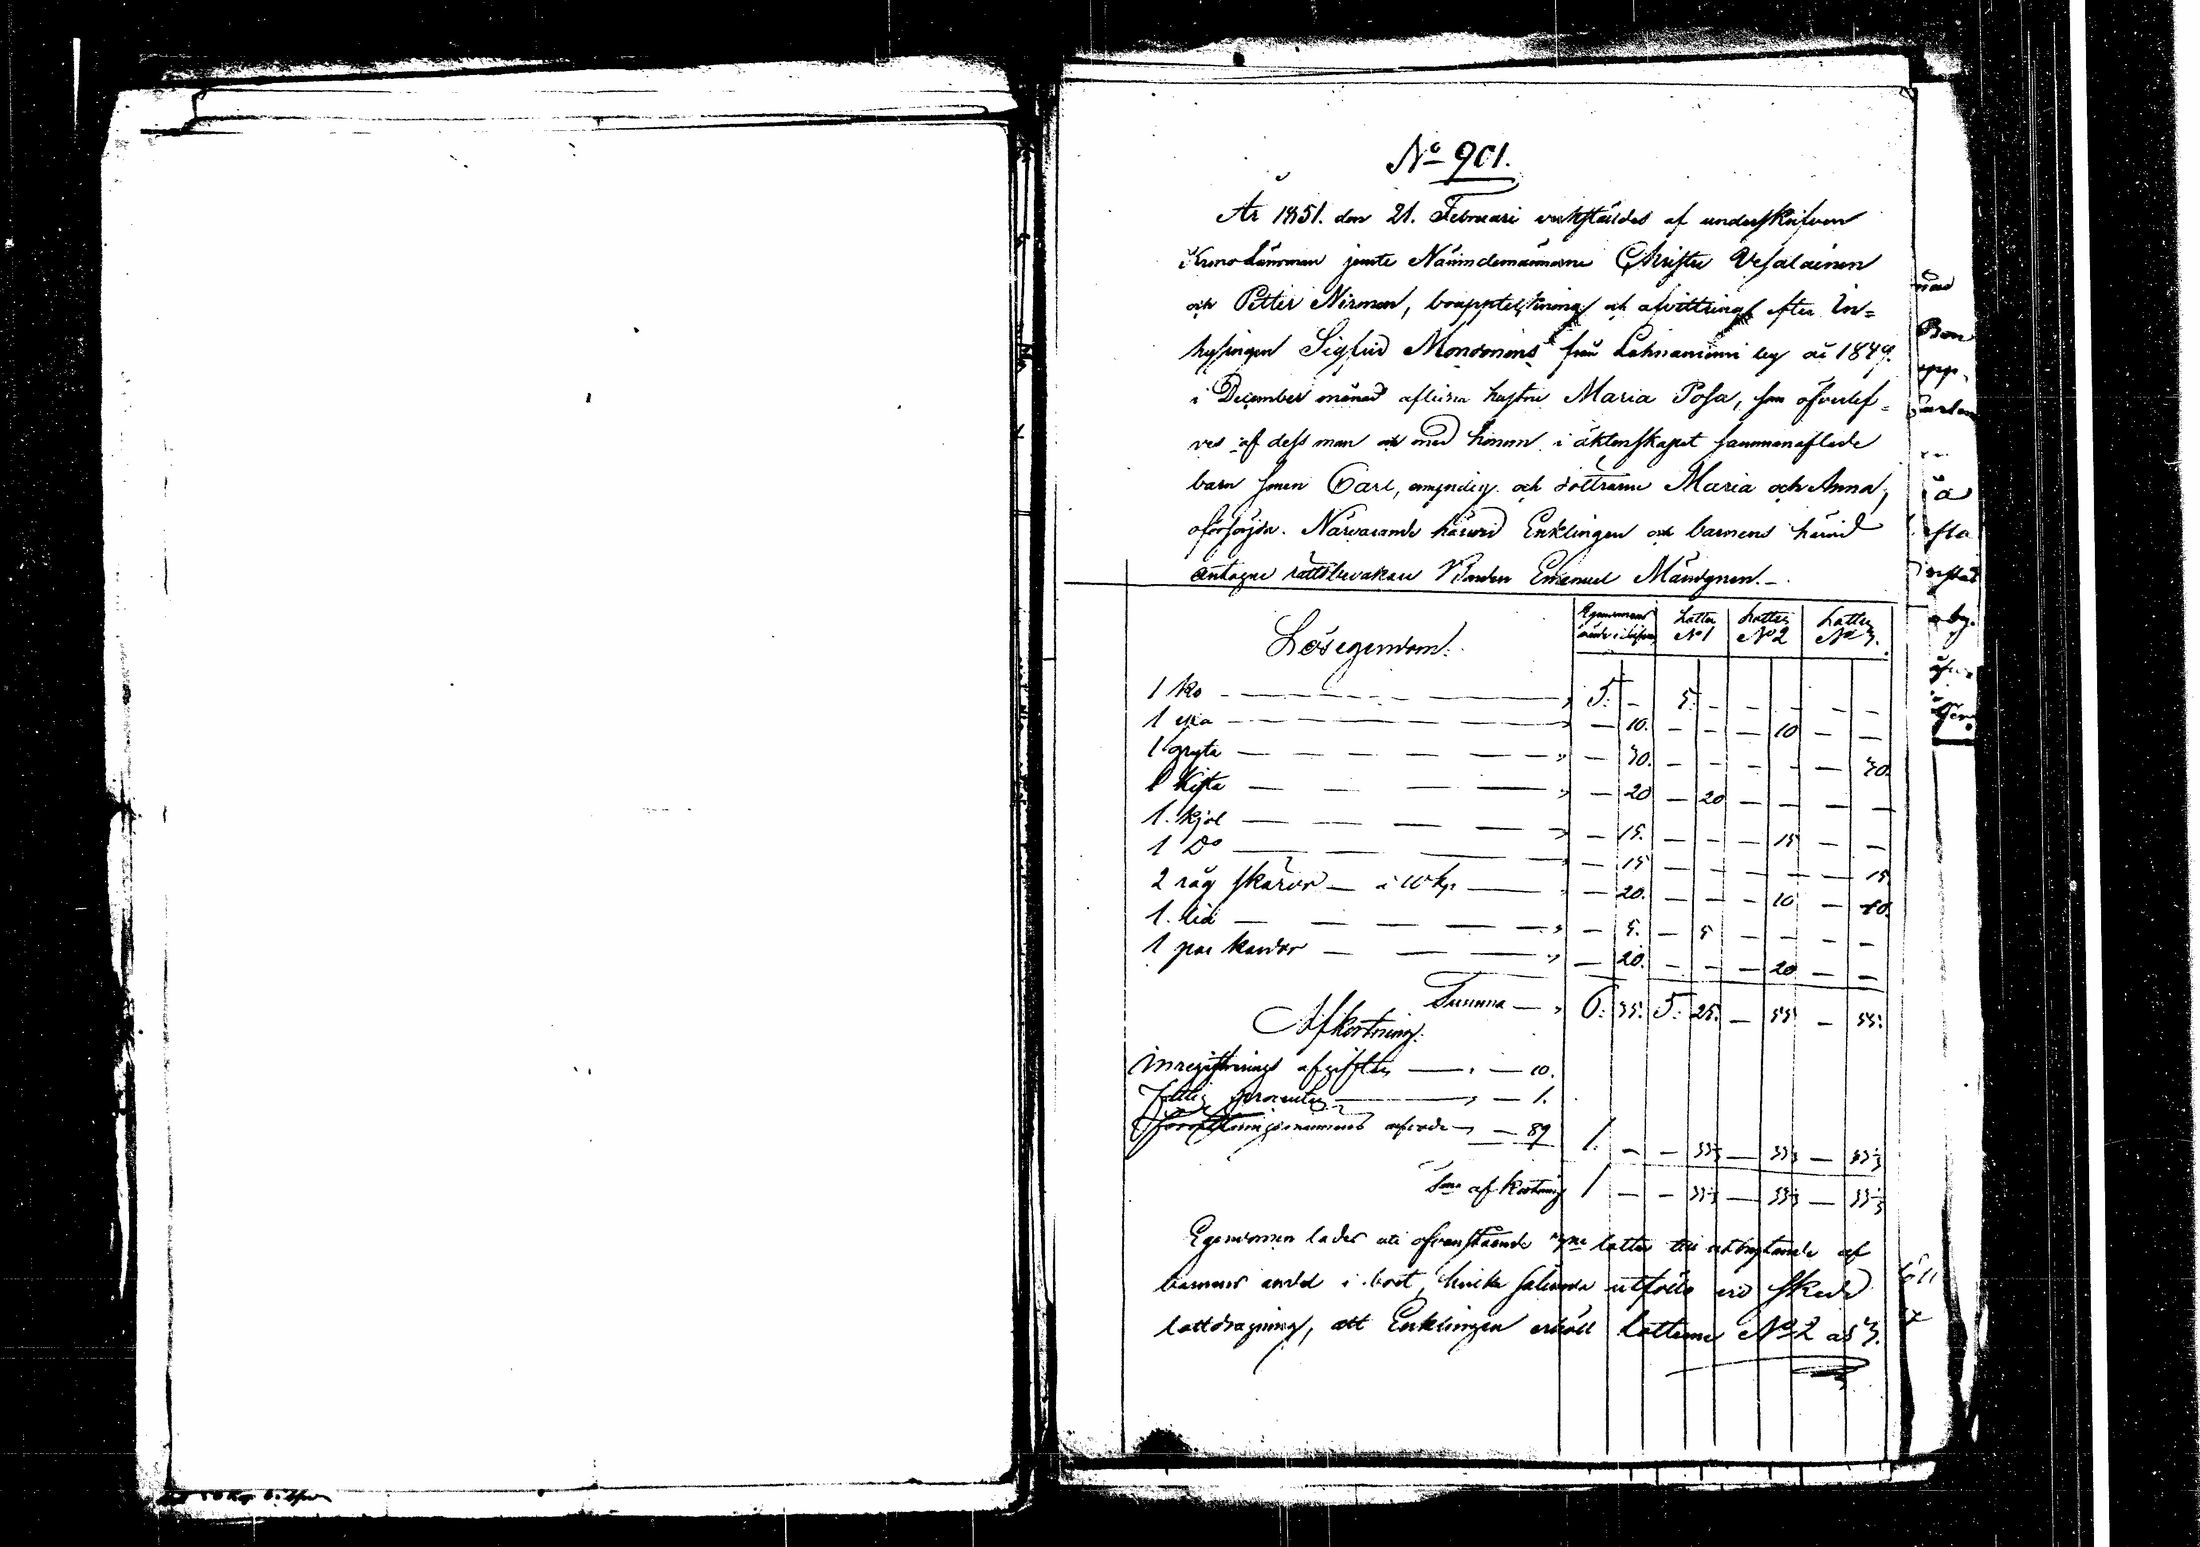 No 901.
År 1851. den 21. Februari verkställdes af underskrifven
Krono Länsman jemte Nämndemännerne Christer Vesalainen
och Petter Nironen, bouppteckning och afvittring efter In=
hysingen Sigfrid Monvonens från Lahnaniemi by år 1849.
i December månad aflidna hustru Maria Posa, som öfverlef=
ves af dess man och med honom i äktenskapet sammanaflade
barn sonen Carl, omyndig och döttrarne Maria och Anna,
oförsörjda. Närvarande härvid Enklingen och barnens härvid
antagne rättsbevakare Bonden Emanuel Mändynen.
Lösegendom.
Egendomens värde i Silfver
Lotten No 1
Lotten No 2
Lotten No 3.
1 ko — 5. — 5. — — — — —
1 — 10. — — — 10 — —
1 gryta — 30. — — — — — 30.
1 Kista — 20 — 20 — — — —
1. kjol — 15. — — — 15 — —
1 Do — 15 — — — — — 15
2 råg skäror — à 10 kp — 20. — — — 10 — 10.
1. lia — 5. — 5 — — — —
1 par kardor — 20. — — — 20 — —
Summa — 6. 35. 5. 25. — 55 — 55.
Afkortning.
Inregistrerings afgiften — 10.
Fattig procenten — 1.
Förrättningsmännens arfvode — 89 1. — — 33⅓ — 33⅓ — 33⅓
Sma afkortning 1 — — 33⅓ — 33⅓ — 33⅓
Egendomen lades uti ofvanstående 3ne lotter till utbrytande af
barnens andel i boet, hvilka sålunda utföllo vid skedd
lottdragning, att Enklingen erhöll Lotterne No 2 och 3.